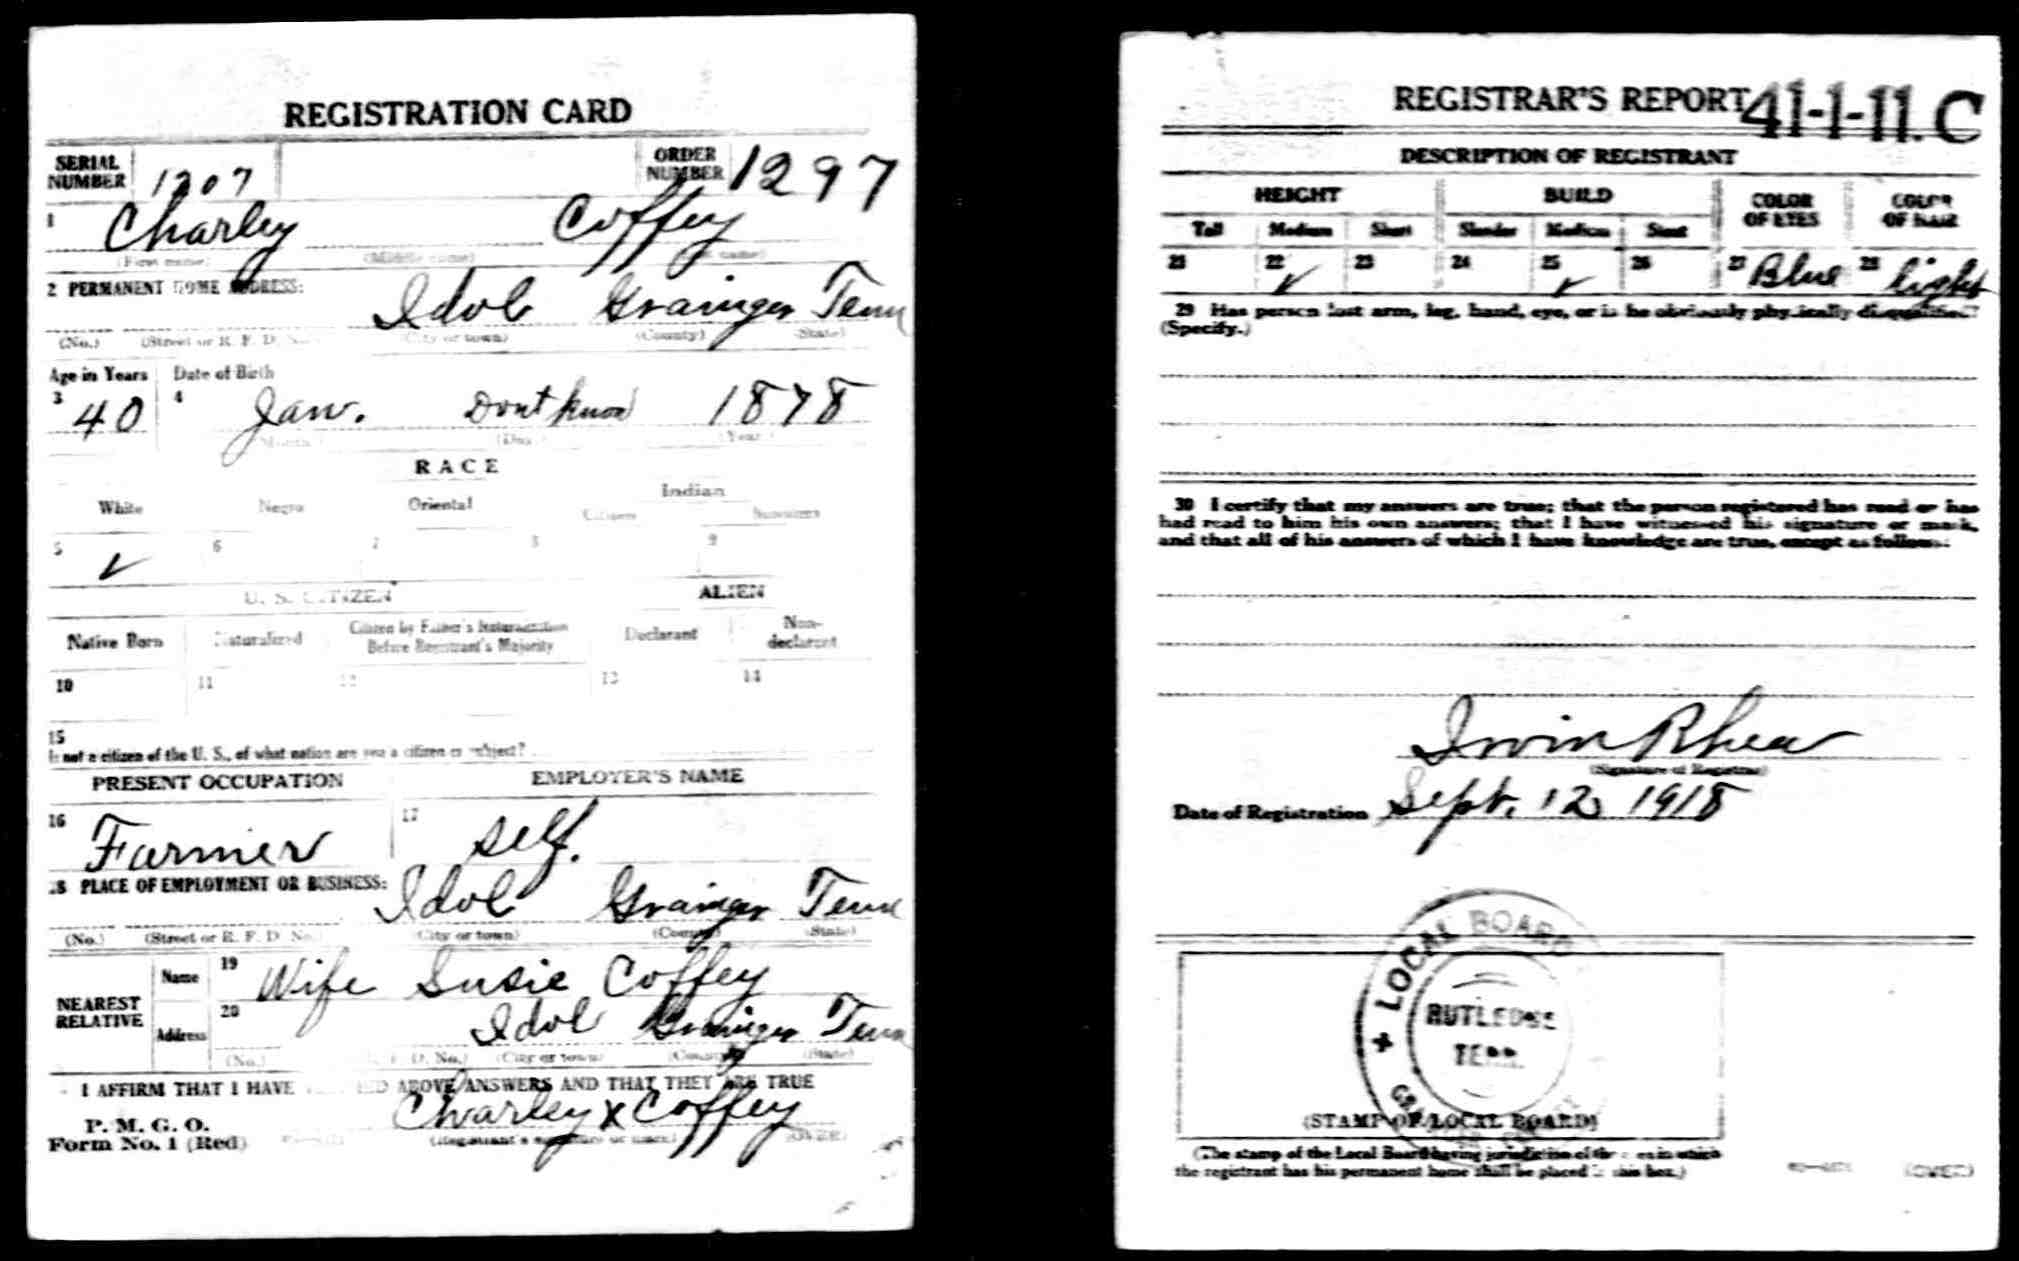 REGISTRATION CARD
SERIAL NUMBER 1207 ORDER NUMBER 1297
1 Charley Coffey
(First name) (Middle name) (Last name)
2 PERMANENT HOME ADDRESS: Idol Grainger Tenn
(No.) (Street or R. F. D. No.) (City or town) (County) (State)
Age in Years Date of Birth
3 40 4 Jan. Dont know 1878
(Month) (Day) (Year)
RACE
White Negro Oriental Indian
Citizen
5 ✓ 6 7 8 9
U. S. CITIZEN ALIEN
Native Born Naturalized Citizen by Father's Naturalization Before Registrant's Majority Declarant Non-declarant
10 11 12 13 14
15
If not a citizen of the U. S., of what nation are you a citizen or subject?
PRESENT OCCUPATION EMPLOYER'S NAME
16 Farmer 17 self.
18 PLACE OF EMPLOYMENT OR BUSINESS: Idol Grainger Tenn
(No.) (Street or R. F. D. No.) (City or town) (County) (State)
NEAREST RELATIVE Name 19 Wife Susie Coffey
Address 20 Idol Grainger Tenn
(No.) R. F. D. No.) (City or town) (County) (State)
I AFFIRM THAT I HAVE ABOVE ANSWERS AND THAT THEY ARE TRUE
P. M. G. O.
Form No. 1 (Red) Charley x Coffey
(Registrant's signature or mark) (OVER)
REGISTRAR'S REPORT 41-1-11. C
DESCRIPTION OF REGISTRANT
HEIGHT BUILD COLOR OF EYES COLOR OF HAIR
Tall Medium Short Slender Medium Stout
21 22 ✓ 23 24 25 ✓ 26 27 Blue 28 light
29 Has person lost arm, leg, hand, eye, or is he obviously physically disqualified?
(Specify.)
30 I certify that my answers are true; that the person registered has read or has
had read to him his own answers; that I have witnessed his signature or mark,
and that all of his answers of which I have knowledge are true, except as follows:
Irvin Rhea
(Signature of Registrar)
Date of Registration Sept. 12 1918
LOCAL BOARD
RUTLEDGE
TENN.
(STAMP OF LOCAL BOARD)
(The stamp of the Local Board having jurisdiction of the area in which
the registrant has his permanent home shall be placed in this box.)
(OVER)